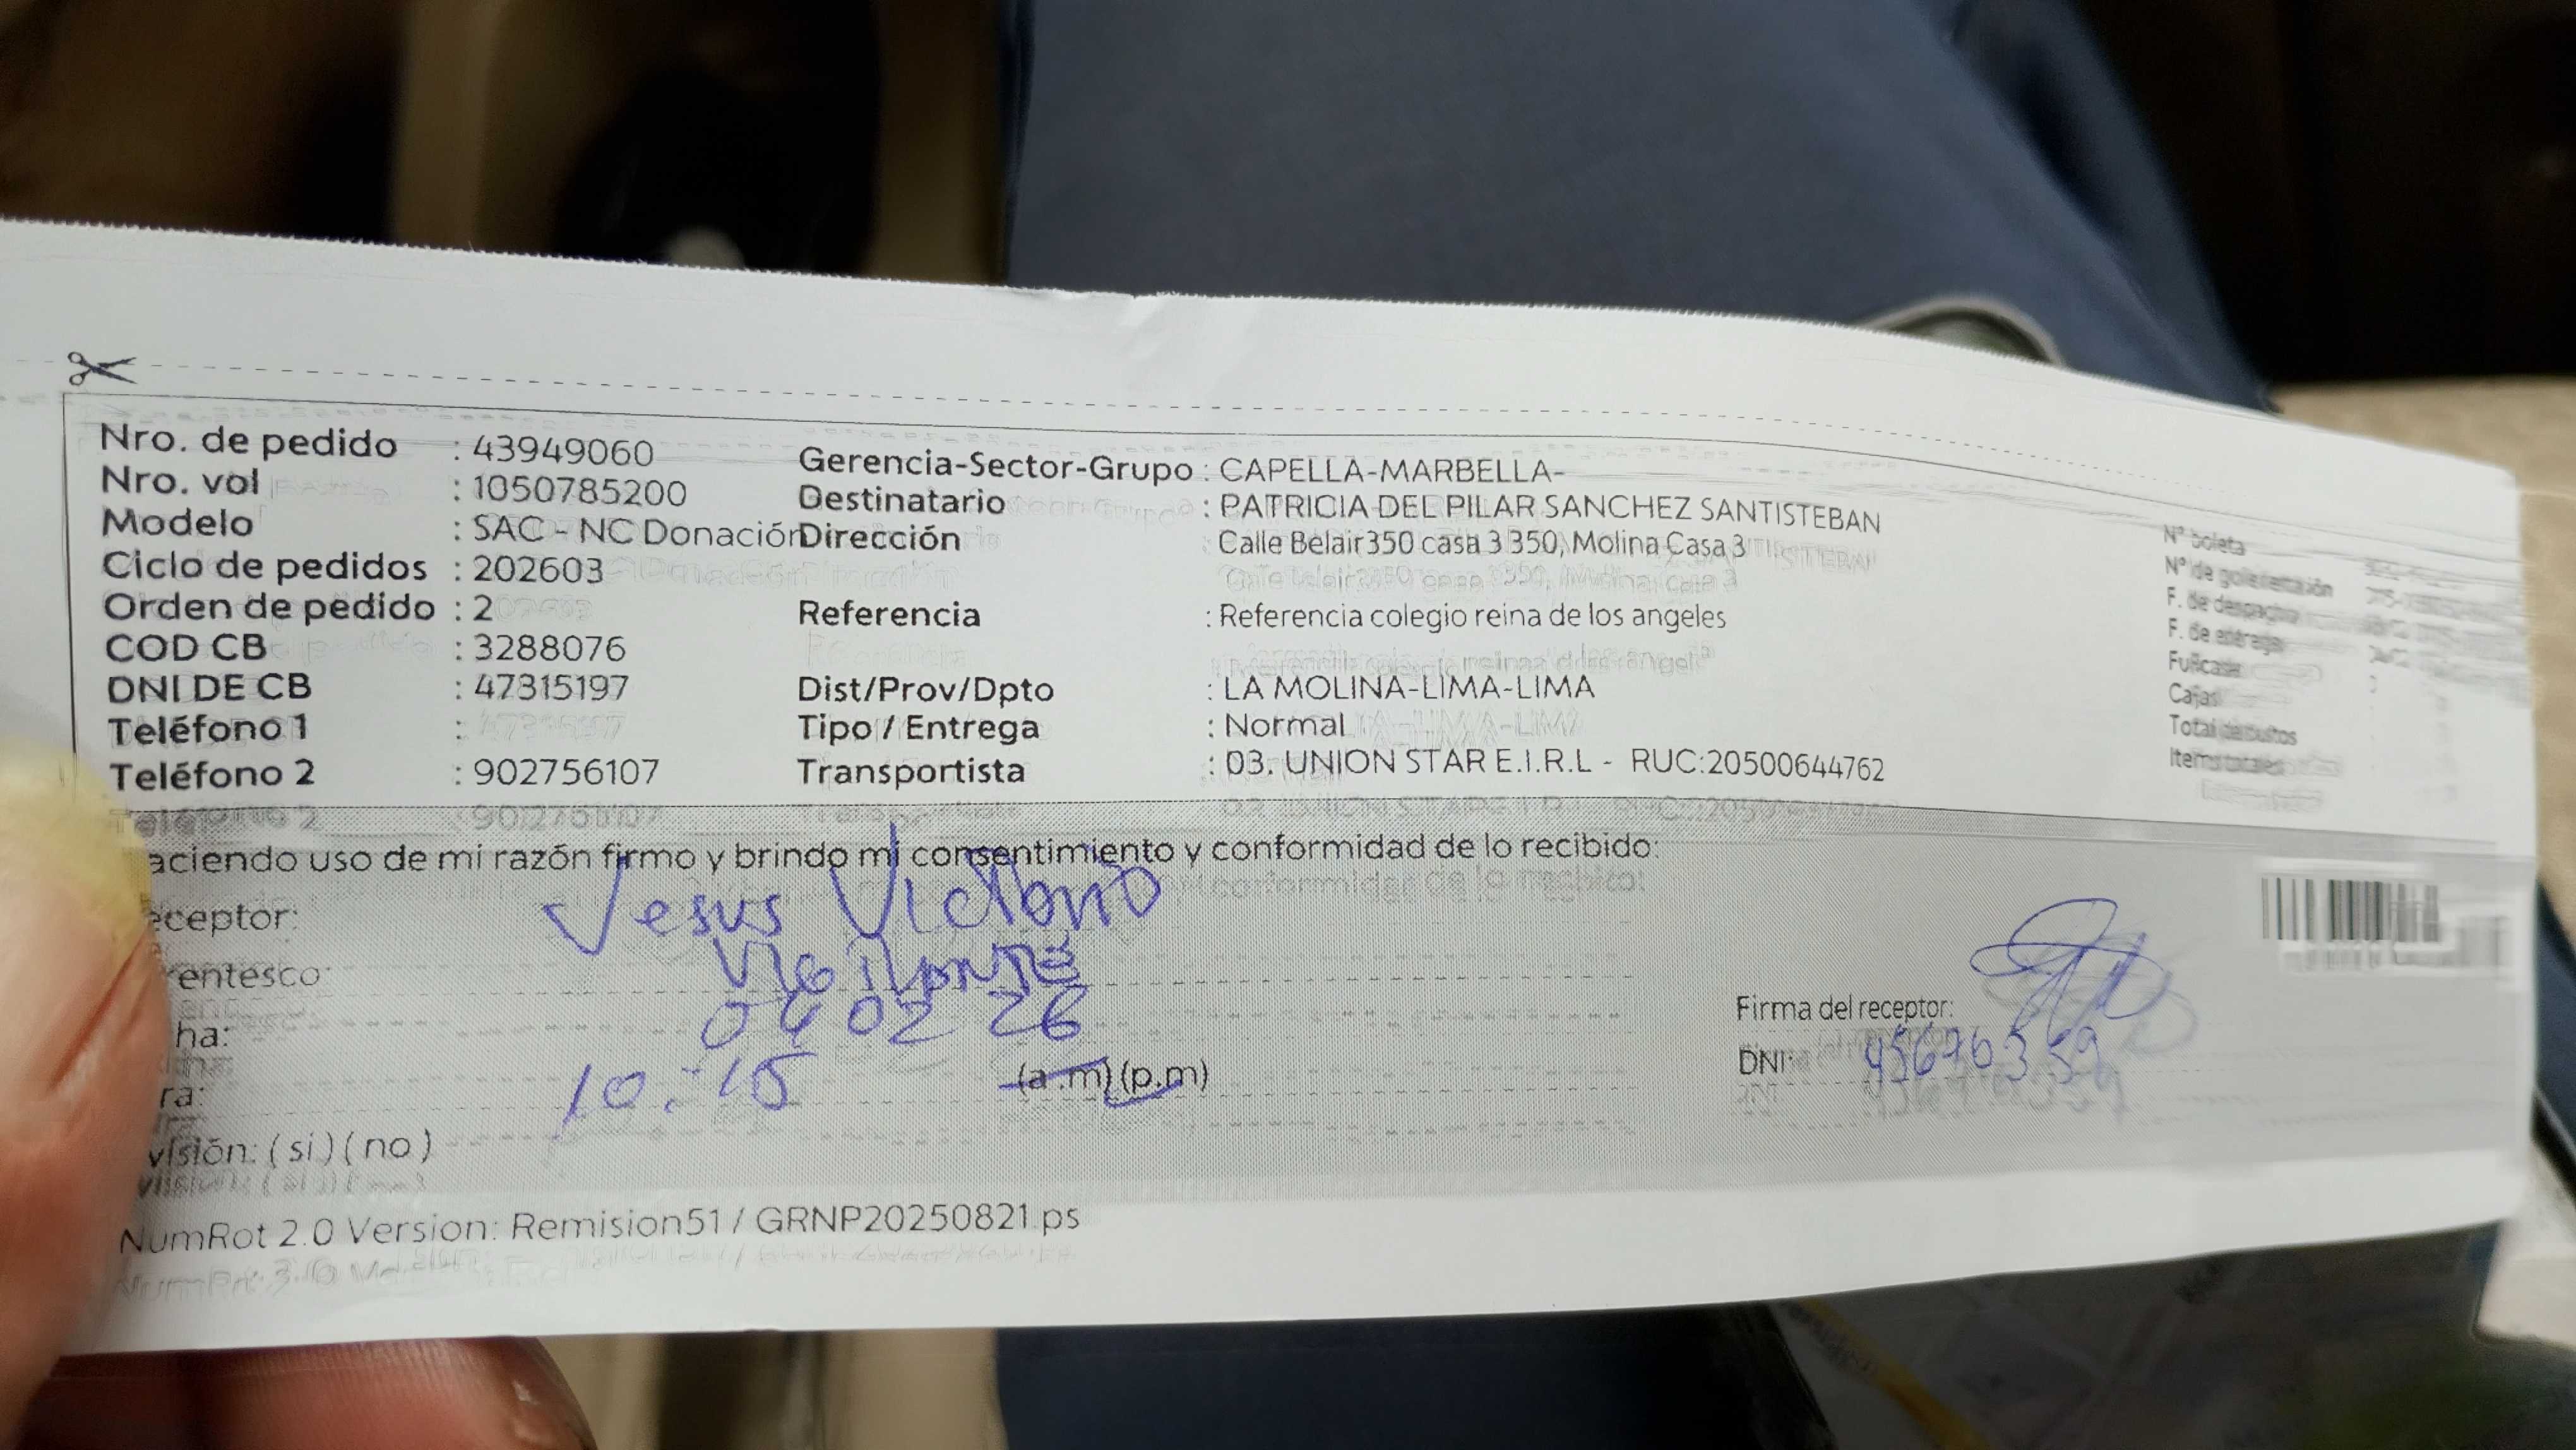 Nro. de pedido : 43949060
Nro. vol : 1050785200
Modelo : SAC - NC Donación
Ciclo de pedidos : 202603
Orden de pedido : 2
COD CB : 3288076
DNI DE CB : 47315197
Teléfono 1 :
Teléfono 2 : 902756107
Gerencia-Sector-Grupo : CAPELLA-MARBELLA-
Destinatario : PATRICIA DEL PILAR SANCHEZ SANTISTEBAN
Dirección : Calle Belair 350 casa 3 350, Molina Casa 3
Referencia : Referencia colegio reina de los angeles
Dist/Prov/Dpto : LA MOLINA-LIMA-LIMA
Tipo / Entrega : Normal
Transportista : 03. UNION STAR E.I.R.L - RUC:20500644762
N° boleta
F. de entrega
Cajas
aciendo uso de mi razón firmo y brindo mi consentimiento y conformidad de lo recibido:
eceptor: Jesus Victorio
entesco: VIGILANTE
ha: 04 02 26
ra: 10:15 (a.m) (p.m)
visión: ( si ) ( no )
Firma del receptor:
DNI: 45676359
NumRot 2.0 Version: Remision51 / GRNP20250821.ps